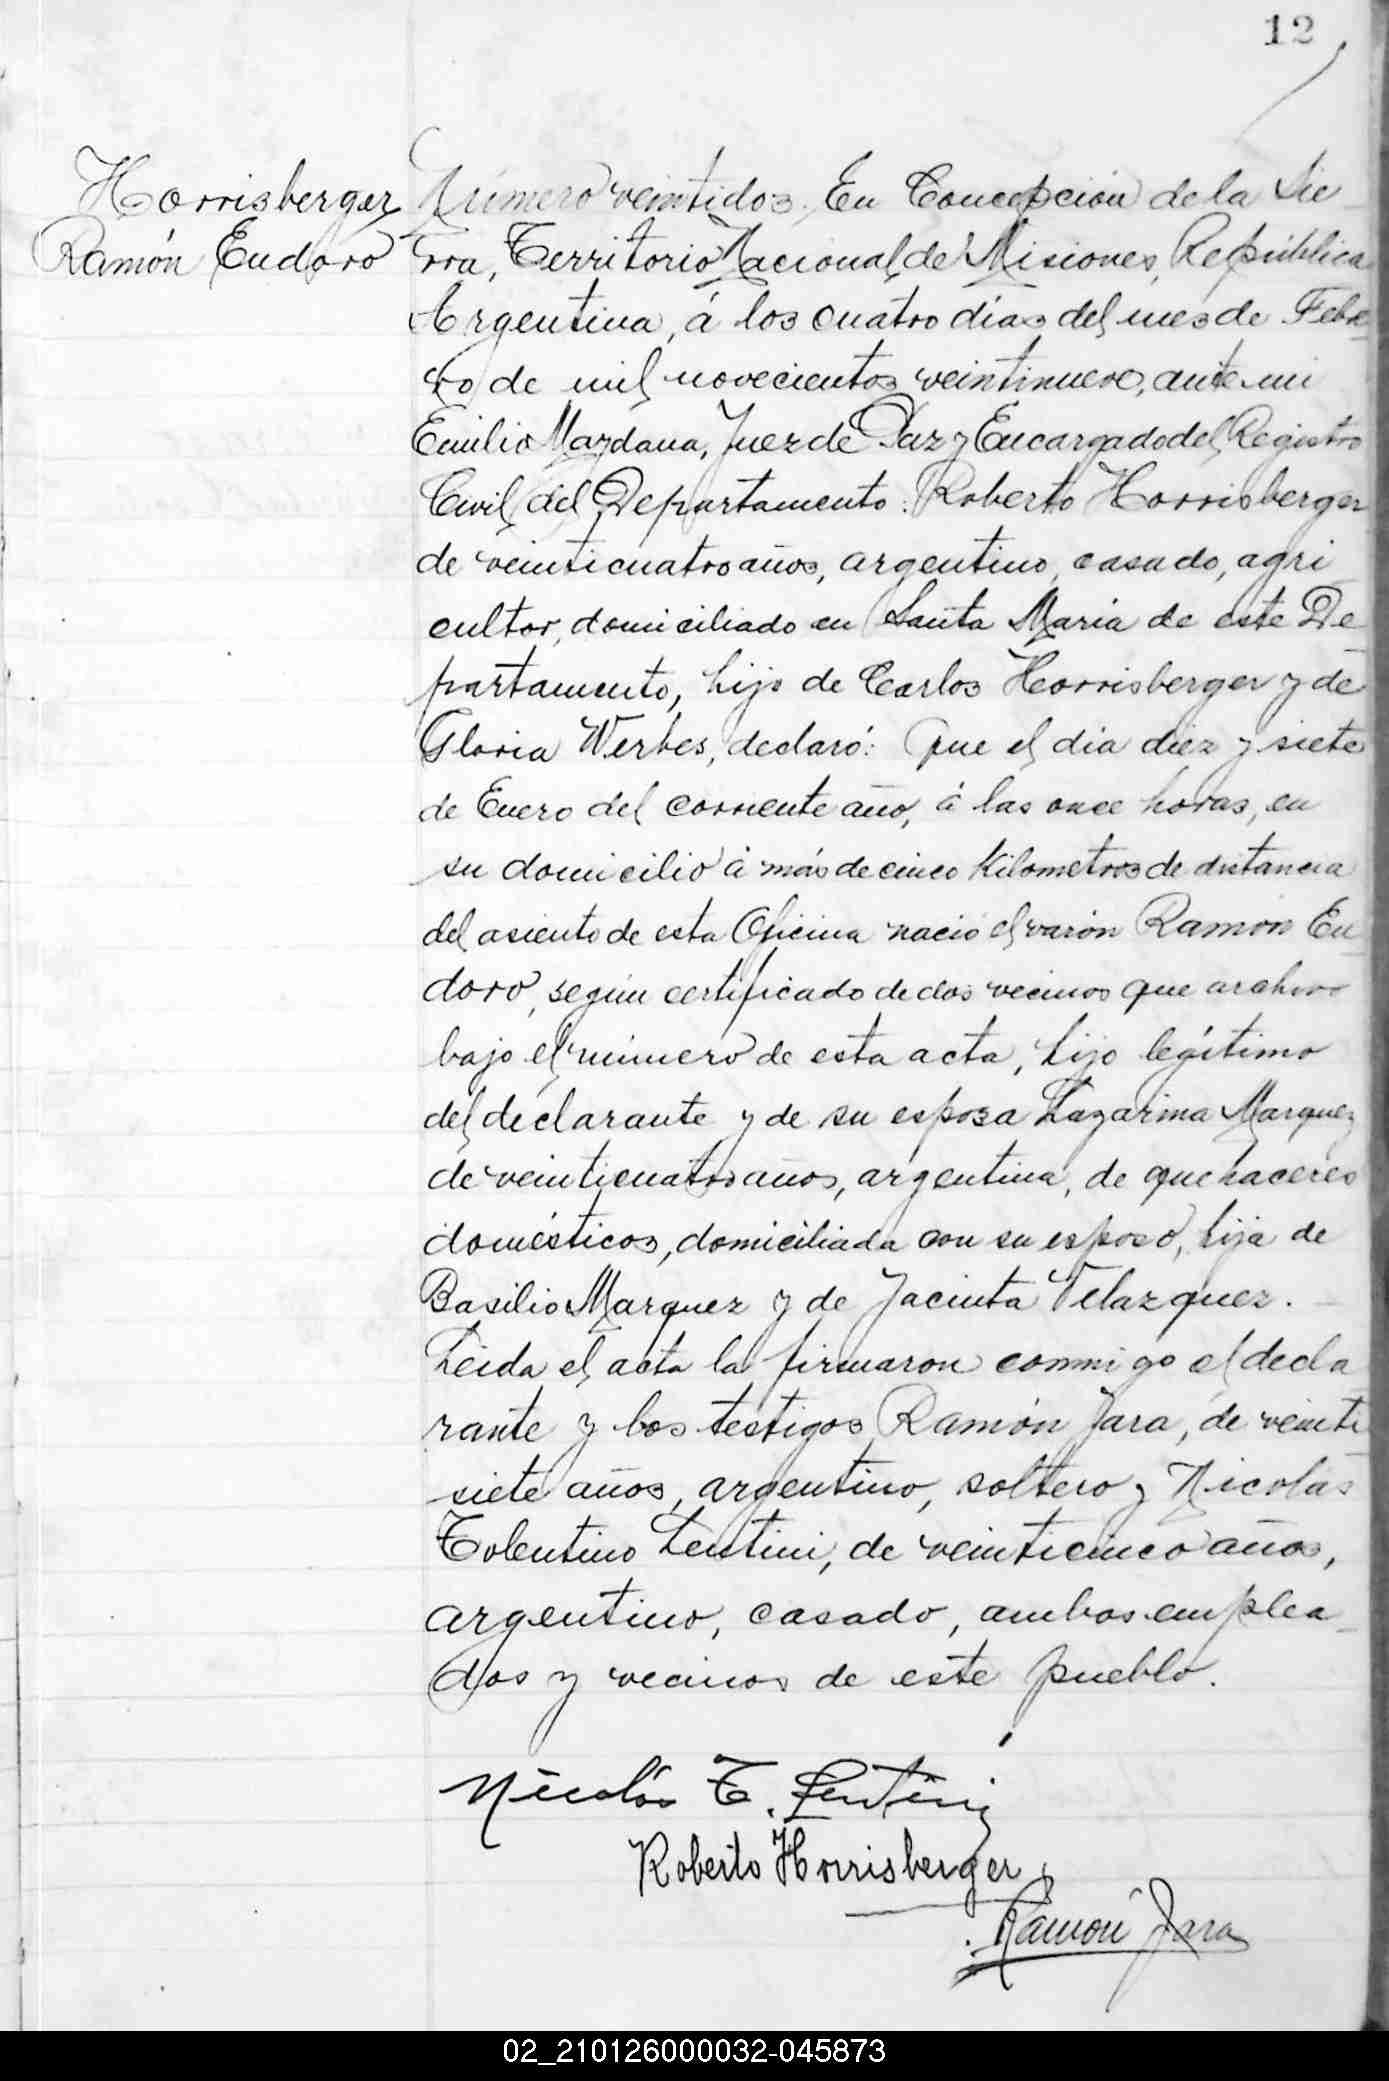 12
Horrisberger
Ramón Eudoro
Número veintidos. En Concepción de la Sie
rra, Territorio Nacional de Misiones, República
Argentina, á los cuatro dias del mes de Febre
ro de mil novecientos veintinueve, ante mi
Emilio Maydana, Juez de Paz y Encargado del Registro
Civil del Departamento: Roberto Horrisberger
de veinticuatro años, argentino, casado, agri
cultor, domiciliado en Santa Maria de este De
partamento, hijo de Carlos Horrisberger y de
Gloria Werbes, declaró: Que el dia diez y siete
de Enero del corriente año, á las once horas, en
su domicilio á más de cinco Kilometros de distancia
del asiento de esta Oficina nació el varón Ramón Eu
doro, según certificado de dos vecinos que archivo
bajo el número de esta acta, hijo legítimo
del declarante y de su esposa Lazarina Marquez
de veinticuatro años, argentina, de quehaceres
domésticos, domiciliada con su esposo, hija de
Basilio Marquez y de Jacinta Velazquez.
Leida el acta la firmaron conmigo el decla
rante y los testigos Ramón Jara, de veinti
siete años, argentino, soltero y Nicolás
Tolentino Lentini, de veinticinco años,
argentino, casado, ambos emplea
dos y vecinos de este pueblo.
Nicolás T. Lentini
Roberto Horrisberger
Ramón Jara
02_210126000032-045873